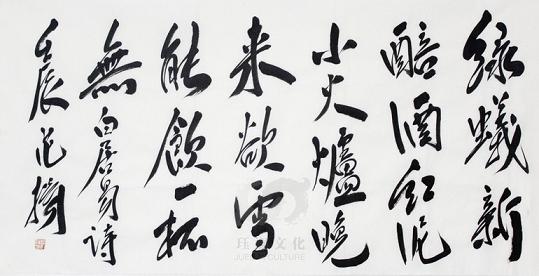 綠蟻新
醅酒紅泥
小火爐晚
来欲雪
能飲一杯
無白居易詩
壬辰
文化
CULTURE